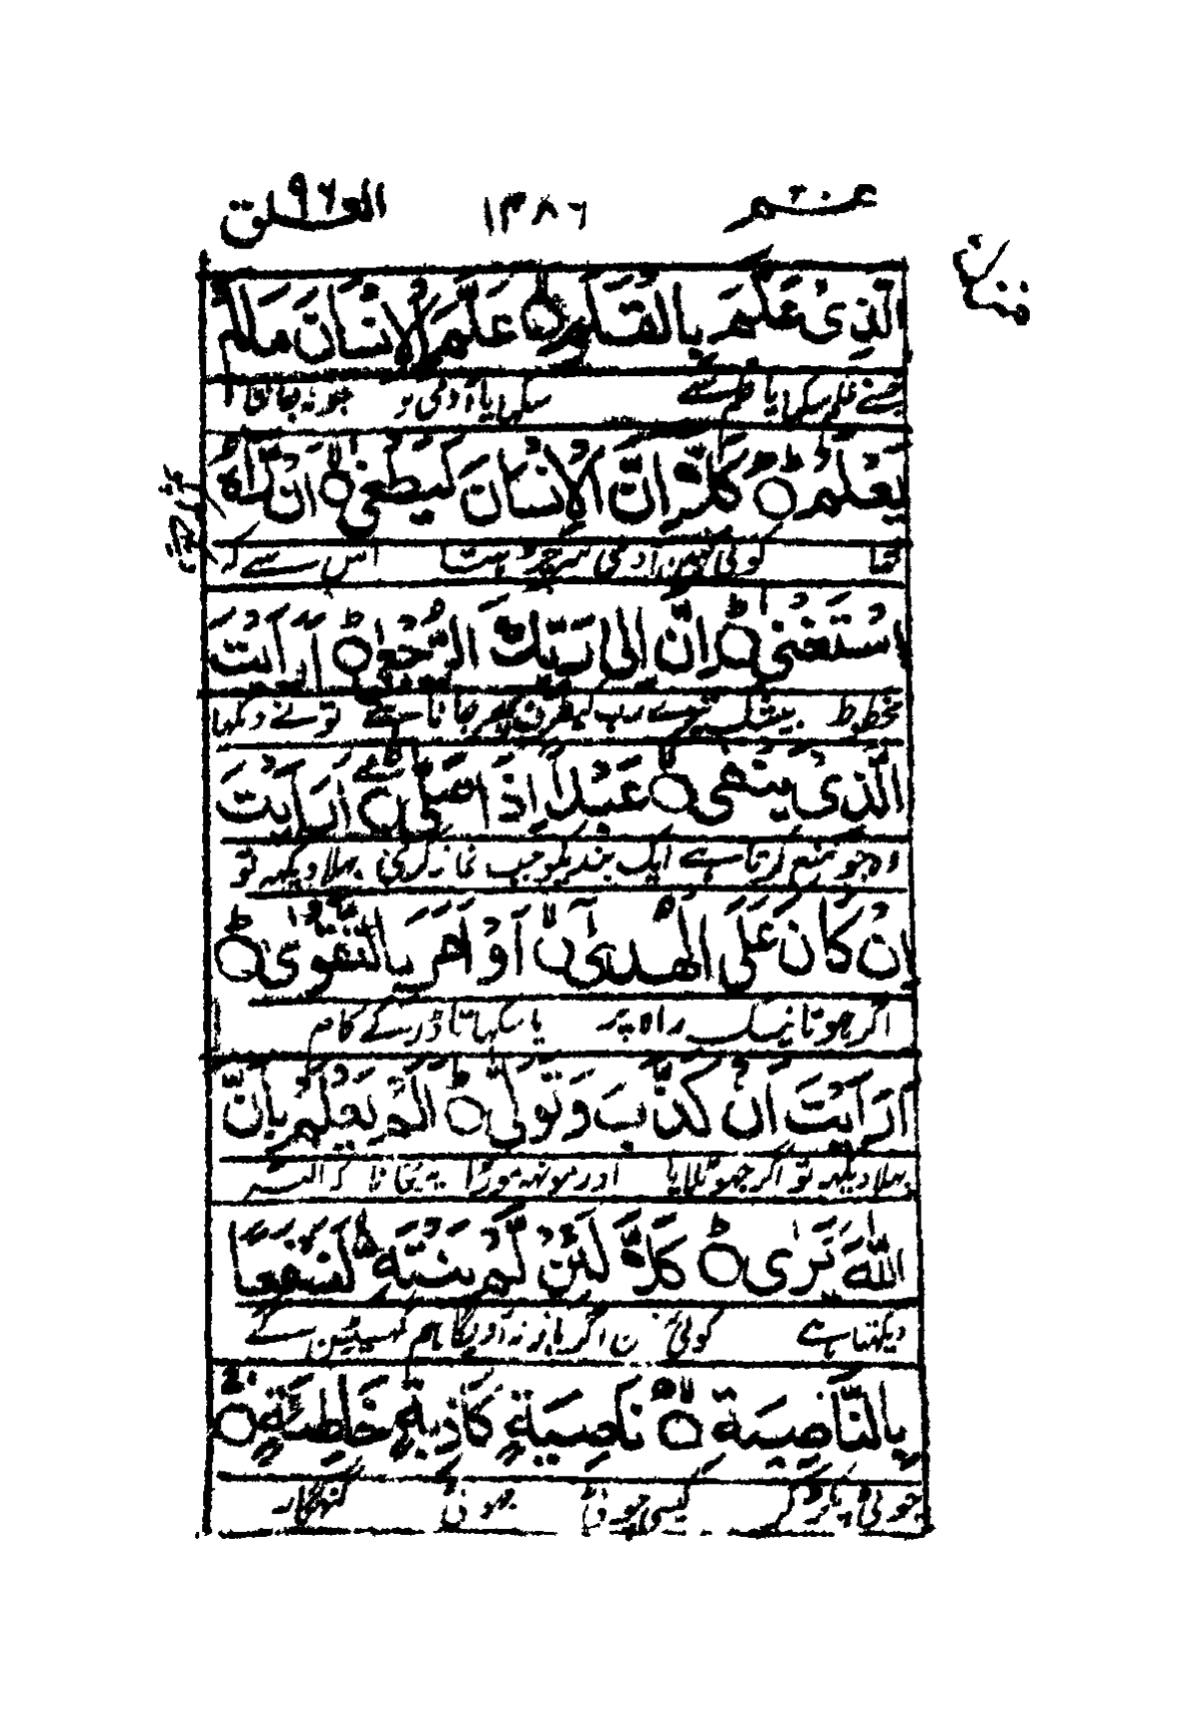 عـم ١٣٨٦ العلق ٩٦
الَّذِىْ عَلَّمَ بِالْقَلَمِ ۙ عَلَّمَ الْاِنْسَانَ مَالَمْ
جسنے علم سکھایا قلم سے سکھایا آدمی کو جو نہ جانتا
يَعْلَمْ ۭ كَلَّآ اِنَّ الْاِنْسَانَ لَيَطْغٰٓى ۙ اَنْ رَّاٰهُ
تھا کوئی نہیں آدمی سر چڑھتا اس سے کہ
اسْتَغْنٰى ۭ اِنَّ اِلٰى رَبِّكَ الرُّجْعٰى ۭ اَرَءَيْتَ
محظوظ بیشک تیرے رب کیطرف پھر جانا ہے تونے دیکھا
الَّذِىْ يَنْهٰى ۙ عَبْدًا اِذَا صَلّٰى ۭ اَرَءَيْتَ
وہ جو منع کرتا ہے ایک بندیکو جب نماز کرے بھلا دیکھ تو
اِنْ كَانَ عَلَى الْهُدٰٓى ۙ اَوْ اَمَرَ بِالتَّقْوٰى ۭ
اگر ہوتا نیک راہ پر یا سکھاتا ڈر کے کام
اَرَءَيْتَ اِنْ كَذَّبَ وَتَوَلّٰى ۭ اَلَمْ يَعْلَمْ بِاَنَّ
بھلا دیکھ تو اگر جھوٹلایا اور مونھ موڑا یہ نجانا کہ اللہ
اللّٰهَ يَرٰى ۭ كَلَّا لَئِنْ لَّمْ يَنْتَهِ ۙ لَنَسْفَعًا
دیکھتا ہے کوئی ن اگر باز نہ آویگا ہم گھسیٹیں گے
بِالنَّاصِيَةِ ۙ نَاصِيَةٍ كَاذِبَةٍ خَاطِئَةٍ ۚ
چوٹی پکڑ کر کیسی چوٹی جھوٹی گنہگار